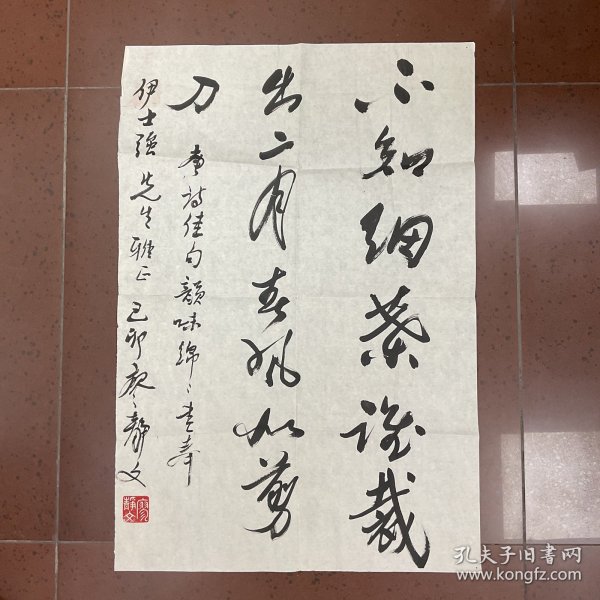 不知细叶谁裁
出二月春风似剪
刀 唐诗佳句韵味绵〻 书奉
伊士强先生雅正 己卯廖静文
廖静文
孔夫子旧书网
www.kongfz.com